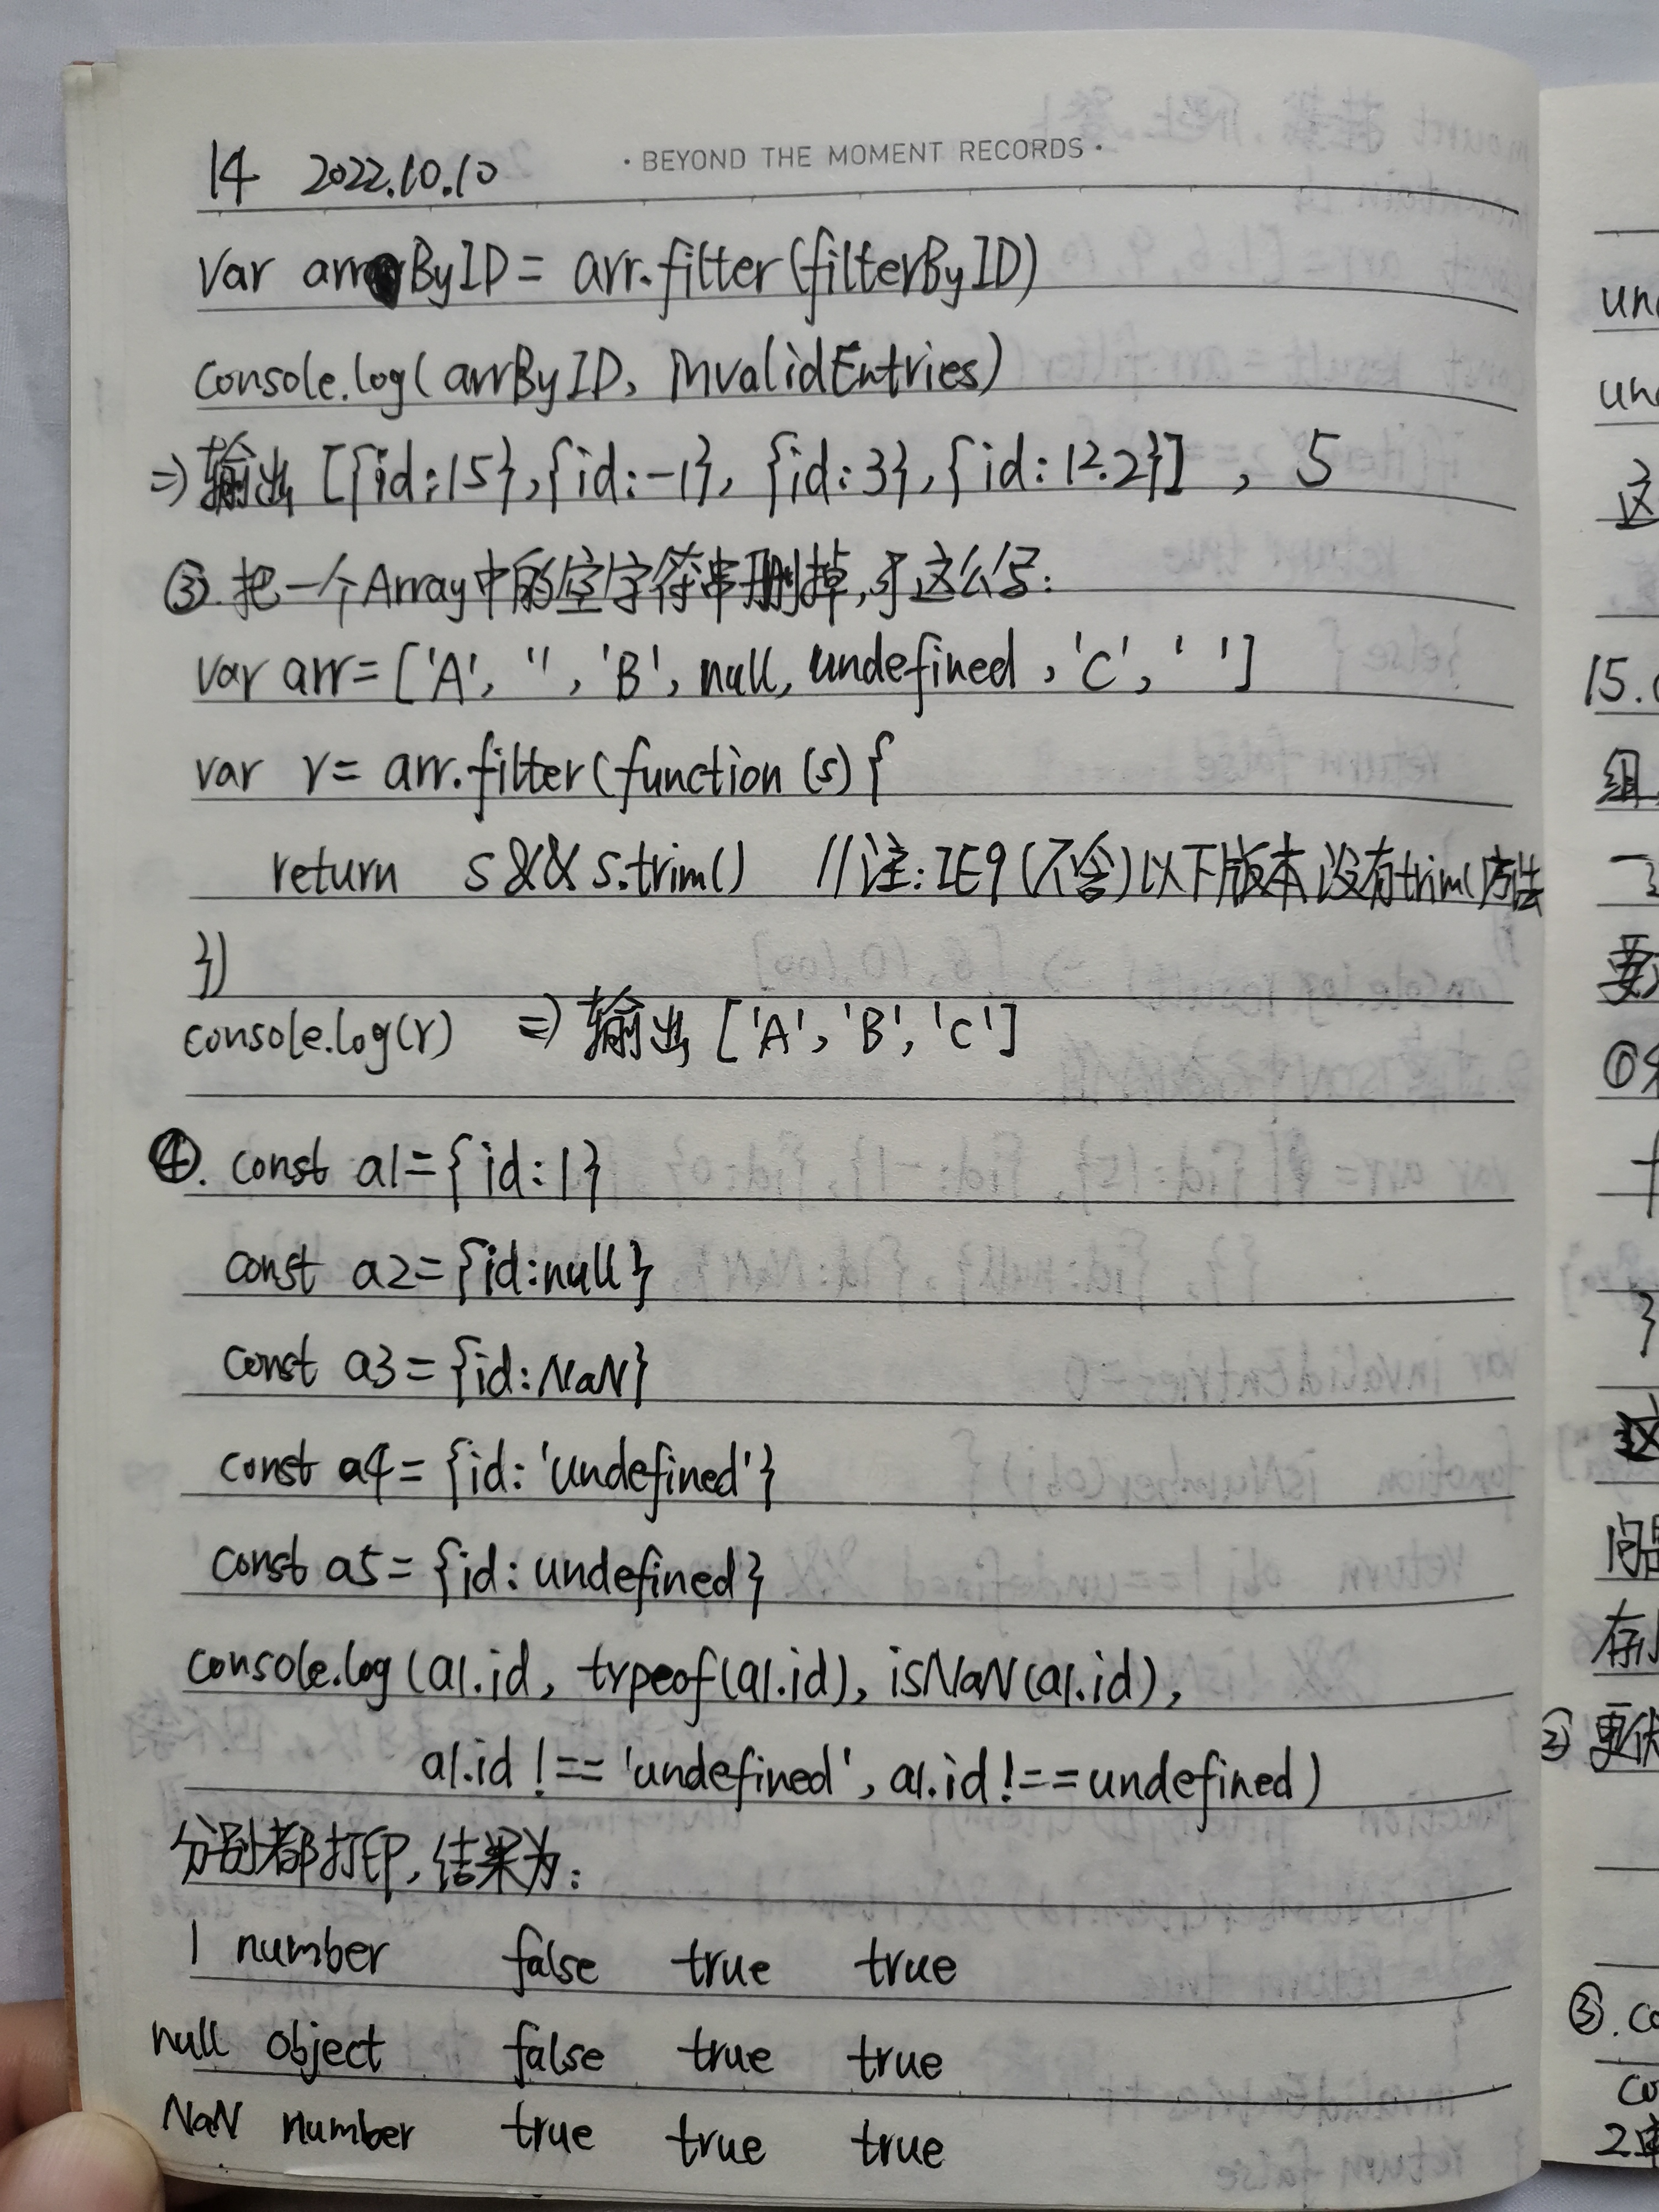 14 2022.10.10 · BEYOND THE MOMENT RECORDS ·
var arrByID = arr.filter(filterByID)
console.log(arrByID, invalidEntries)
=> 输出 [{id:15},{id:-1}, {id:3},{id:12.2}] , 5
③. 把一个Array中的空字符串删掉,可这么写:
var arr=['A', '', 'B', null, undefined ,'C', ' ']
var r= arr.filter(function (s) {
return s && s.trim() //注: IE9 (不含) 以下版本 没有trim()方法
})
console.log(r) => 输出 ['A', 'B', 'C']
④. const a1={id:1}
const a2={id:null}
const a3={id:NaN}
const a4={id: 'undefined'}
const a5={id: undefined}
console.log (a1.id, trpeof(a1.id), isNaN(a1.id),
a1.id !== 'undefined', a1.id !== undefined)
分别都打印,结果为:
1 number false true true
null object false true true
NaN number true true true
这
15.
组
要
①
}
这
问
存
② 更
③. co
co
2